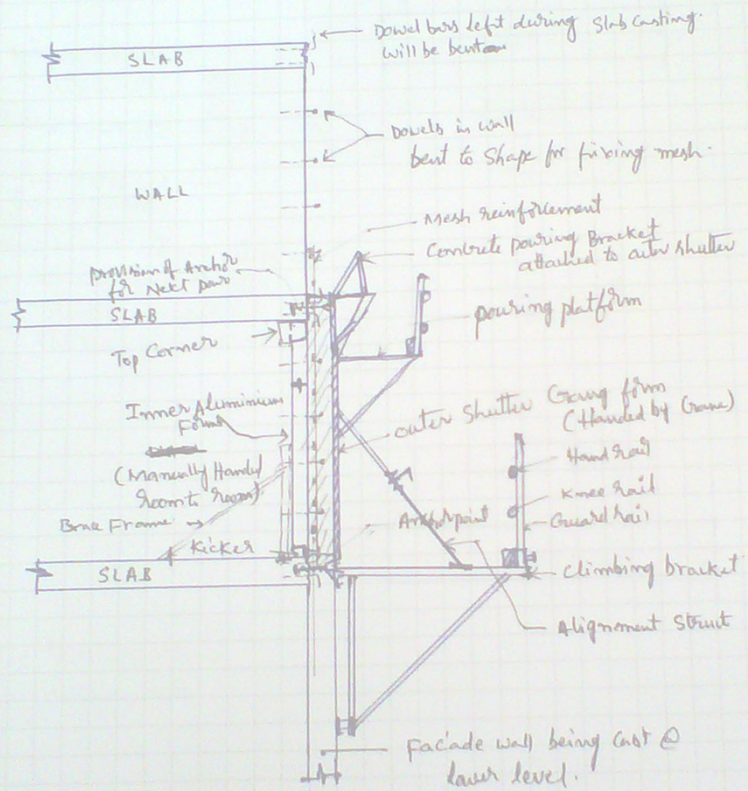 Dowel bars left during Slab Casting.
will be bent
SLAB
Dowels in wall
bent to Shape for fixing mesh.
WALL
Mesh reinforcement
Concrete pouring Bracket
attached to outer shutter
provision of Anchor
for Next pour
SLAB
pouring platform
Top Corner
Inner Aluminium
Form
outer Shutter Gang form
(Handed by Crane)
(Manually Handed
room to room)
Hand rail
Knee rail
Guard rail
Brace Frame
Anchor point
Kicker
SLAB
Climbing bracket
Alignment Strut
Facade wall being cast @
lower level.